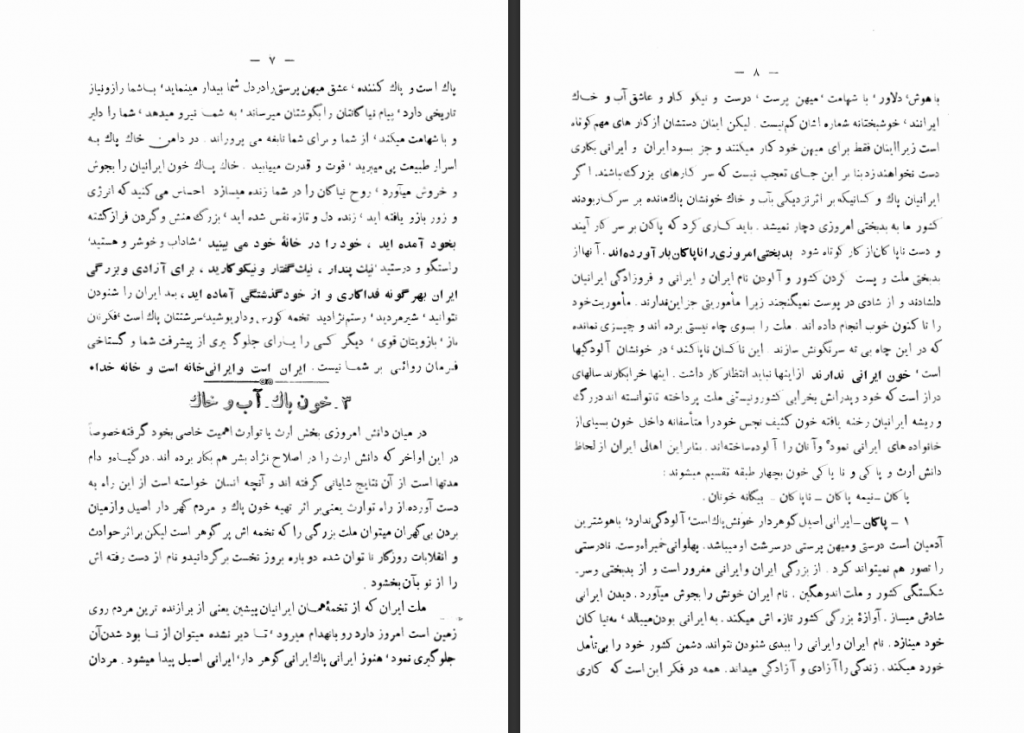 — ۷ —
پاك است و پاك كننده ٬ عشق میهن پرستی را در دل شما بیدار مینماید٬ با شما راز و نیاز
تاریخی دارد ٬ پیام نیاكانتان را بگوشتان میرساند ٬ به شما نیرو میدهد ٬ شما را دلیر
و با شهامت میكند ٬ از شما و برای شما نابغه می پروراند . در دامن خاك پاك به
اسرار طبیعت پی میبرید ٬ قوت و قدرت مییابید . خاك پاك خون ایرانیان را بجوش
و خروش میآورد ٬ روح نیاكان را در شما زنده میسازد احساس می كنید كه انرژی
و زور بازو یافته اید ٬ زنده دل و تازه نفس شده اید ٬ بزرگ منش و گردن فراز گشته
بخود آمده اید ، خود را در خانهٔ خود می بینید ٬ شاداب و خوشر و هستید٬
راستگو و درستید٬ نیك پندار ، نیك گفتار و نیكو كارید ، برای آزادی و بزرگی
ایران بهر گونه فداكاری و از خود گذشتگی آماده اید ، بد ایران را شنودن
نتوانید ٬ شیر مردید ٬ رستم نژادید تخمه كورش و داریوشید٬ سرشتتان پاك است ٬ فكرتان
باز ٬ بازویتان قوی ٬ دیگر كسی را یارای جلوگیری از پیشرفت شما و گستاخی
فرمان روائی بر شما نیست . ایران است و ایرانی خانه است و خانه خدا٠
۳ـ خون پاك ـ آب و خاك
در میان دانش امروزی بخش ارث یا توارث اهمیت خاصی بخود گرفته خصوصاً
در این اواخر كه دانش ارث را در اصلاح نژاد بشر هم بكار برده اند . در گیاه و دام
مدتها است از آن نتایج شایانی گرفته اند و آنچه انسان خواسته است از این راه به
دست آورده از راه توارث یعنی بر اثر تهیه خون پاك و مردم گهر دار اصیل و از میان
بردن بی گهران میتوان ملت بزرگی را كه تخمه اش پر گوهر است لیكن بر اثر حوادث
و انقلابات روزگار نا توان شده دو باره بروز نخست برگردانید و نام از دست رفته اش
را از نو بآن بخشود .
ملت ایران كه از تخمهٔ همان ایرانیان پیشین یعنی از برازنده ترین مردم روی
زمین است امروز دارد رو بانهدام میرود ٬ تا دیر نشده میتوان از نا بود شدن آن
جلوگیری نمود ٬ هنوز ایرانی پاك ایرانی گوهر دار ٬ ایرانی اصیل پیدا میشود . مردان
— ۸ —
با هوش٬ دلاور ٬ با شهامت ٬ میهن پرست ٬ درست و نیكو كار و عاشق آب و خاك
ایرانند ٬ خوشبختانه شماره اشان كم نیست . لیكن اینان دستشان از كار های مهم كوتاه
است زیرا اینان فقط برای میهن خود كار میكنند و جز بسود ایران و ایرانی بكاری
دست نخواهند زد بنا بر این جای تعجب نیست كه سر كارهای بزرگ نباشند. اگر
ایرانیان پاك و كسانیكه بر اثر نزدیكی بآب و خاك خونشان پاك مانده بر سر كار بودند
كشور ما به بدبختی امروزی دچار نمیشد . باید كاری كرد كه پاكان بر سر كار آیند
و دست ناپاكان از كار كوتاه شود بدبختی امروزی را ناپاكان بار آورده اند. آنها از
بدبختی ملت و پست كردن كشور و آلودن نام ایران و ایرانی و فروزادگی ایرانیان
دلشادند و از شادی در پوست نمیگنجند زیرا مأموریتی جز این ندارند . مأموریت خود
را تا كنون خوب انجام داده اند . ملت را بسوی چاه نیستی برده اند و چیزی نمانده
كه در این چاه بی ته سرنگونش سازند . این ناكسان ناپاكند٬ در خونشان آلودگیها
است ٬ خون ایرانی ندارند از اینها نباید انتظار كار داشت . اینها خرابكارند سالهای
دراز است كه خود و پدرانش بخرابی كشور و نیستی ملت پرداخته تا توانسته اند در رگ
و ریشه ایرانیان رخنه یافته خون كثیف نجس خود را متأسفانه داخل خون بسیای از
خانواده های ایرانی نمود٬ و آنان را آلوده ساخته اند. بنابر این اهالی ایران از لحاظ
دانش ارث و پاكی و نا پاكی خون بچهار طبقه تقسیم میشوند :
پاكان ــ نیمه پاكان ــ ناپاكان . بیگانه خونان .
۱ ــ پاكان ــ ایرانی اصیل گوهر دار خونش پاك است٬ آلودگی ندارد٬ با هوشترین
آدمیان است درستی و میهن پرستی در سرشت او میباشد. پهلوانی خمیره اوست. نادرستی
را تصور هم نمیتواند كرد . از بزرگی ایران و ایرانی مغرور است و از بدبختی و سر-
شكستگی كشور و ملت اندوهگین . نام ایران خونش را بجوش میآورد . دیدن ایرانی
شادش میساز . آوازهٔ بزرگی كشور تازه اش میكند. به ایرانی بودن میبالد ٬ به نیاكان
خود مینازد . نام ایران و ایرانی را ببدی شنودن نتواند. دشمن كشور خود را بی تأمل
خورد میكند . زندگی را آزادی و آزادگی میداند. همه در فكر این است كه كاری